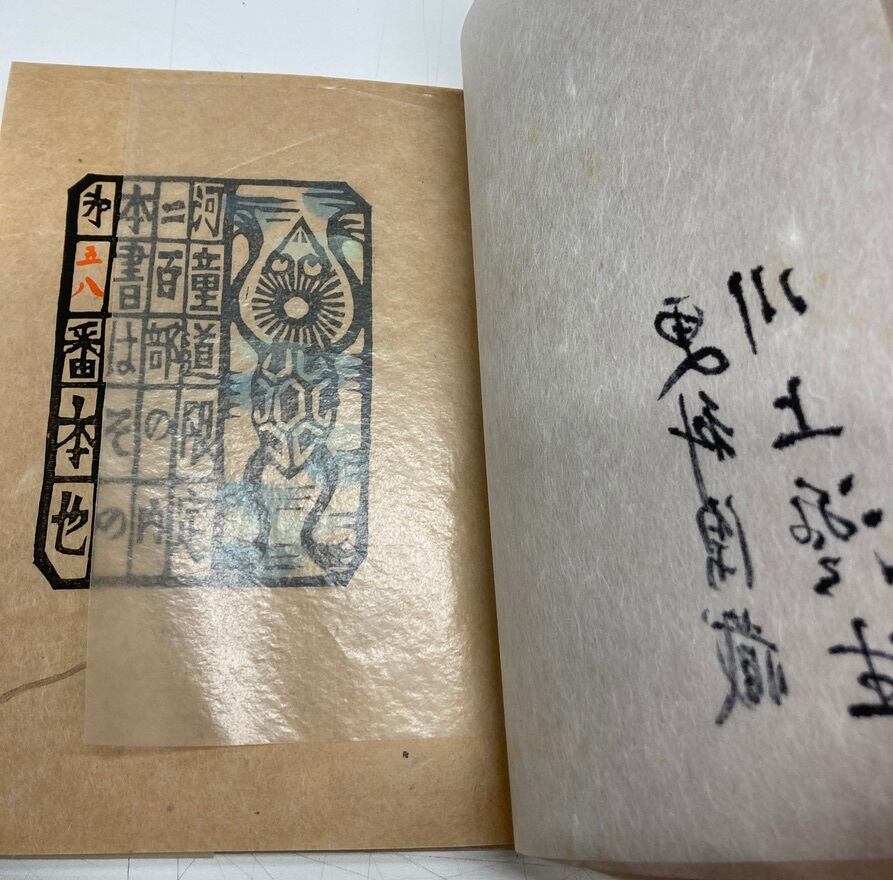 河童道限定
二百部の内
本書はその
㐧五八番本也
川上澄生